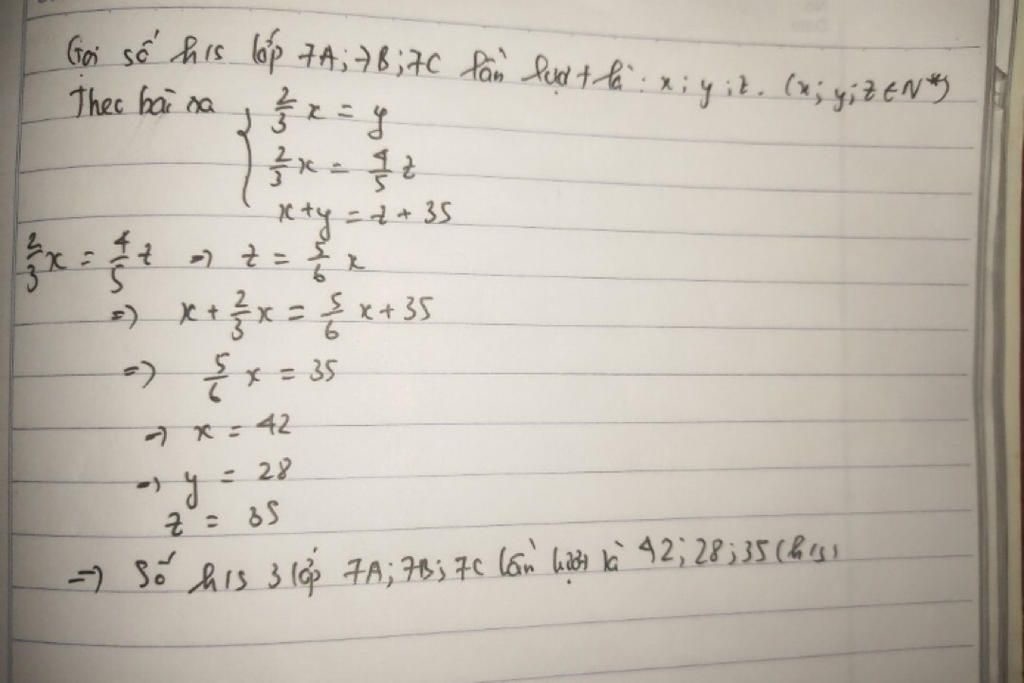 Gọi số h/s lớp 7A; 7B; 7C lần lượt là: x; y; z. (x; y; z ∈ N*)
Theo bài ra { 2/3 x = y
2/3 x = 4/5 z
x + y = z + 35
2/3 x = 4/5 z => z = 5/6 x
=> x + 2/3 x = 5/6 x + 35
=> 5/6 x = 35
=> x = 42
=> y = 28
z = 35
=> Số h/s 3 lớp 7A; 7B; 7C lần lượt là 42; 28; 35 (h/s)